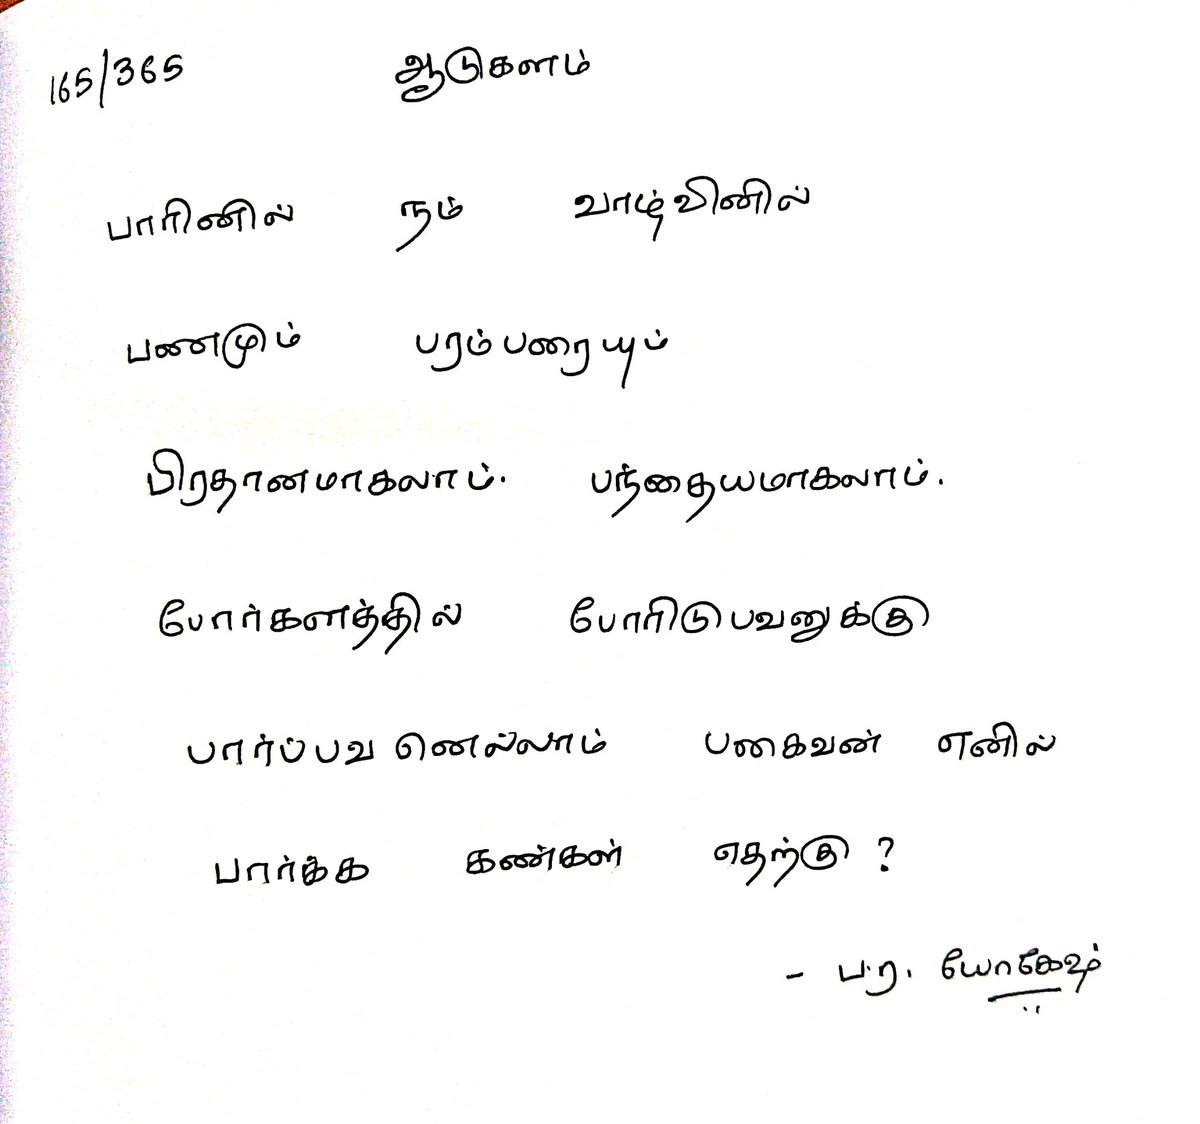 165/365 ஆடுகளம்
பாரினில் நம் வாழ்வினில்
பணமும் பரம்பரையும்
பிரதானமாகலாம். பந்தையமாகலாம்.
போர்களத்தில் போரிடுபவனுக்கு
பார்ப்பவ னெல்லாம் பகைவன் எனில்
பார்க்க கண்கள் எதற்கு?
- ப.ர. யோகேஷ்